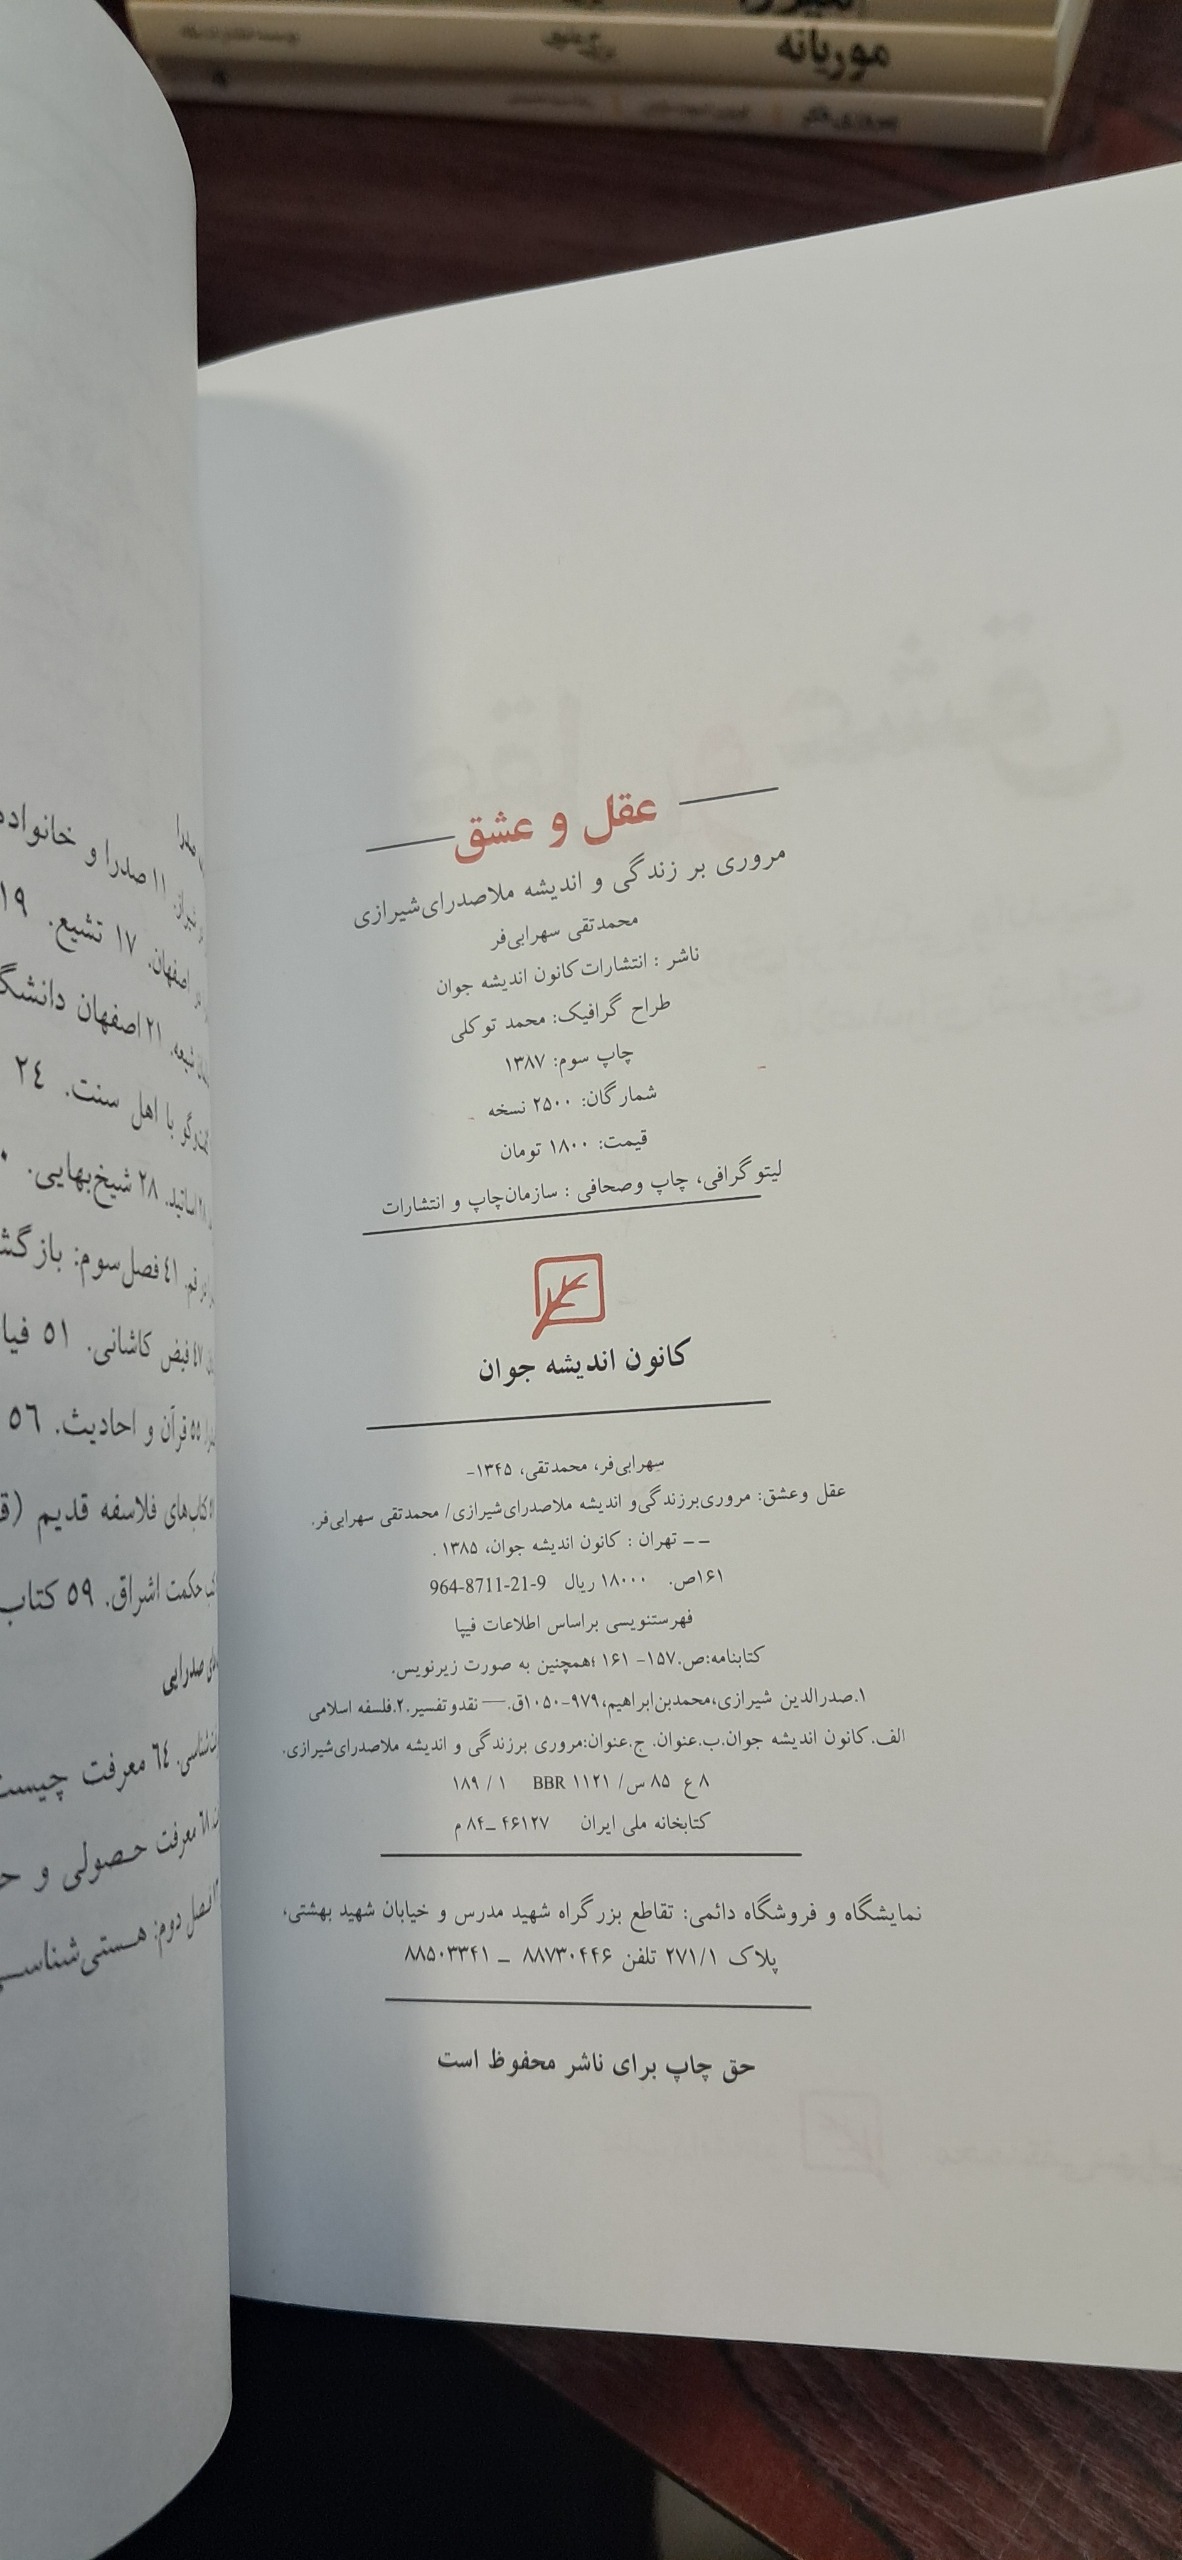 موریانه
عقل و عشق
مروری بر زندگی و اندیشه ملاصدرای‌شیرازی
محمدتقی سهرابی‌فر
ناشر : انتشارات کانون اندیشه جوان
طراح گرافیک: محمد توکلی
چاپ سوم: ۱۳۸۷
شمارگان: ۲۵۰۰ نسخه
قیمت: ۱۸۰۰ تومان
لیتوگرافی، چاپ وصحافی : سازمان‌چاپ و انتشارات
کانون اندیشه جوان
سهرابی‌فر، محمدتقی، ۱۳۴۵-
عقل وعشق: مروری‌برزندگی‌و اندیشه ملاصدرای‌شیرازی/ محمدتقی سهرابی‌فر.
ــ ــ تهران : کانون اندیشه جوان، ۱۳۸۵ .
۱۶۱ص. ۱۸۰۰۰ ریال 964-8711-21-9
فهرستنویسی براساس اطلاعات فیپا
کتابنامه:ص.۱۵۷- ۱۶۱ ؛همچنین به صورت زیرنویس.
۱.صدرالدین شیرازی،محمدبن‌ابراهیم،۹۷۹-۱۰۵۰ق.— نقدوتفسیر.۲.فلسفه اسلامی
الف.کانون اندیشه جوان.ب.عنوان. ج.عنوان:مروری برزندگی و اندیشه ملاصدرای‌شیرازی.
۸ ع ۸۵ س/ ۱۱۲۱ BBR ۱ / ۱۸۹
کتابخانه ملی ایران ۴۶۱۲۷ ــ۸۴ م
نمایشگاه و فروشگاه دائمی: تقاطع بزرگراه شهید مدرس و خیابان شهید بهشتی،
پلاک ۲۷۱/۱ تلفن ۸۸۷۳۰۴۴۶ ــ ۸۸۵۰۳۳۴۱
حق چاپ برای ناشر محفوظ است
صدرا
۱۱ صدرا و
اصفهان. ۱۷ تشیع. ۱۹
شیعه. ۲۱ اصفهان
با اهل سنت. ۲٤
اساتید. ۲۸ شیخ‌بهایی.
قم. ٤۱ فصل‌سوم:
٤۷ فیض کاشانی. ۵۱
۵۵ قرآن و احادیث. ۵٦
کتاب‌های فلاسفه قدیم
حکمت اشراق. ۵۹ کتاب
صدرایی
٦٤ معرفت
٦۸ معرفت حصولی و
فصل دوم: